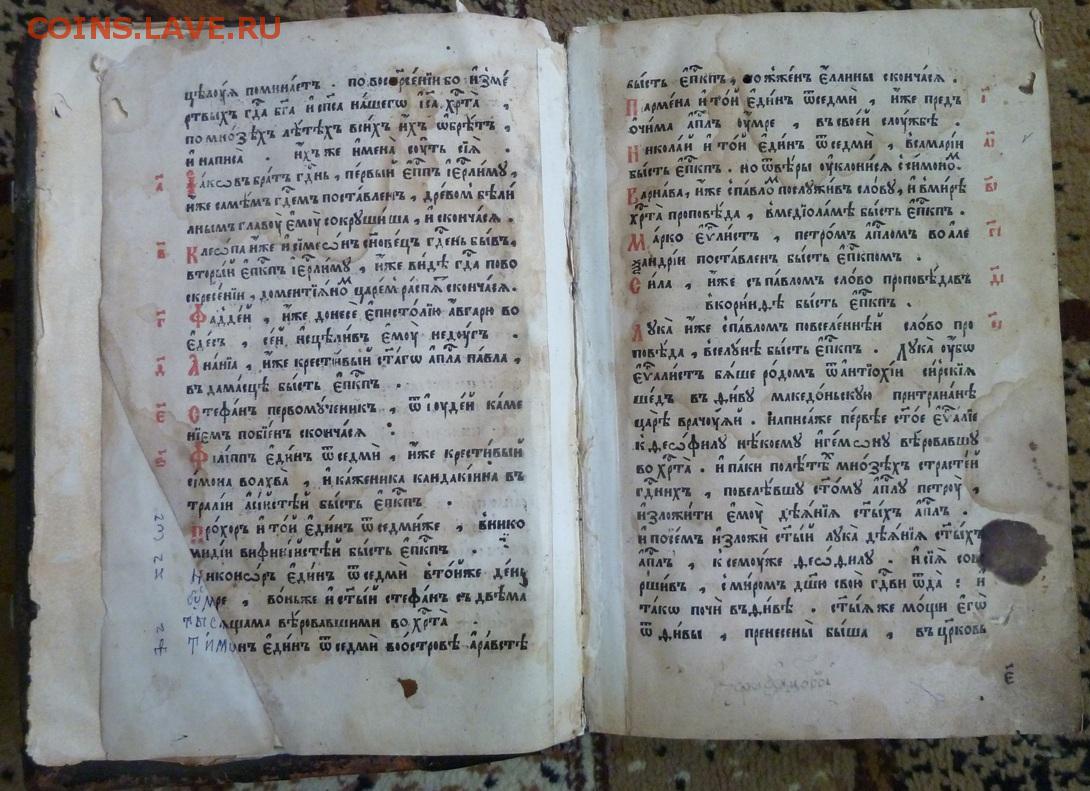 COINS.LAVE.RU
цѣлоуѧ поминаетъ . по воскр҃сенїи бо и҆зме
ртвыхъ гд҃а бг҃а и҆ сп҃са на́шегѡ і҆са хр҃та̀ ,
по мно́зѣхъ лѣ́тѣхъ всѣ́хъ и҆́хъ ѡ҆брѣ́тъ ,
и҆ написа . и҆́хъ же и҆мена̀ соу́ть сїѧ̀ .
а҃ І҆а́кѡвъ бра́тъ гд҃нь , пе́рвый є҆пп҃ъ і҆ер҃лиму ,
и҆́же самѣ́мъ гд҃емъ поста́вленъ , дре́вомъ бѣли́
лнымъ главоу̀ є҆моу̀ сокруши́ша , и҆ сконча́сѧ .
в҃ Клеѡ́па и҆́же и҆ сїмеѡ́нъ сн҃о́вецъ гд҃ень бы́въ ,
вторы́й є҆пк҃пъ і҆ер҃лиму , и҆́же ви́дѣ гд҃а по во
скресе́нїи , доментїѧ́номъ царе́мъ распѧ́тъ сконча́сѧ .
г҃ Фадде́й , и҆́же донесѐ є҆пистолі́ю авгарю во
є҆де́съ , се́й и҆сцѣли́въ є҆моу̀ недоу́гъ .
д҃ А҆на́нїа , и҆́же крести́вый ст҃а́гѡ а҆пл҃а па́вла ,
въ дама́сцѣ бы́сть є҆пк҃пъ .
є҃ Стефа́нъ первому́ченикъ , ѿ і҆оуде́й ка́ме
нїемъ побїе́нъ сконча́сѧ .
ѕ҃ Фїлі́ппъ є҆ди́нъ ѿ седмѝ , и҆́же крести́вый
сі́мона волхва̀ , и҆ ка́женика кандакі́ина въ
тра́лїи а҆сі́йстѣй бы́сть є҆пк҃пъ .
з҃ Про́хоръ и҆ то́й є҆ди́нъ ѿ седми́же , в нико
ми́дїи вифині́йстѣй бы́сть є҆пк҃пъ .
и҃ Никоно́ръ є҆ди́нъ ѿ седмѝ в то́йже де́нь
оу҆́мре , во́ньже и҆ ст҃ы́й стефа́нъ съ двѣма̀
ты́сѧщама вѣ́ровавшими во хр҃та̀
Ти́мѡнъ є҆ди́нъ ѿ седмѝ во о́стровѣ а҆ра́встѣ
бы́сть є҆пк҃пъ , сожже́нъ є҆́ллины сконча́сѧ .
і҃ Парме́на и҆ то́й є҆ди́нъ ѿ седмѝ , и҆́же предъ
о҆чи́ма а҆пл҃ъ оу҆́мре , в свое́й слоу́жбѣ .
а҃і Никола́й и҆ то́й є҆ди́нъ ѿ седмѝ , в самарі́и
бы́сть є҆пк҃пъ . но ѿ вѣ́ры оу҆клони́сѧ с симономъ .
в҃і Варна́ва , и҆́же с па́вломъ послужи́въ сло́ву , и҆ в ми́рѣ
хр҃та̀ пропове́да , в медїола́мѣ бы́сть є҆пк҃пъ .
г҃і Ма́рко є҆ѵ҃лі́стъ , петро́мъ а҆пл҃омъ во але
ѯандрі́и поста́вленъ бы́сть є҆пк҃помъ .
д҃і Си́ла , и҆́же съ па́вломъ сло́во проповѣ́давъ
в кори́нѳѣ бы́сть є҆пк҃пъ .
є҃і Лука̀ и҆́же с па́вломъ по вселе́ннѣй сло́во про
повѣ́да , в селу́нѣ бы́сть є҆пк҃пъ . Лука̀ оу҆́бо
є҆ѵ҃алі́стъ бѧ́ше ро́домъ ѿ антїохі́и си́рскїѧ
ше́дъ въ ѳи́ву македо́ньскую при траиа́нѣ
царѐ врачоу́ѧи . написа́же пе́рвѣе ст҃о́е є҆ѵ҃алїе
к ѳео́филу нѣ́коему и҆ге́мѡну вѣ́ровавшу
во хр҃та̀ . и҆ па́ки по лѣ́тѣхъ мно́зѣхъ страсте́й
гд҃нихъ , повелѣ́вшу ст҃о́му а҆пл҃у петроу̀ ,
и҆зложи́ти є҆моу̀ дѣѧ́нїѧ ст҃ы́хъ а҆пл҃ъ .
и҆ по се́мъ и҆зложѝ ст҃ы́й лука̀ дѣѧ́нїѧ ст҃ы́хъ
а҆пл҃ъ , к семоу́же ѳео́филу . и҆ сїѧ̀ сов
рши́въ , с ми́ромъ дш҃у свою̀ гд҃ви ѿда̀ : и҆
та́кѡ почѝ въ ѳи́вѣ . ст҃ы́ѧ же мо́щи є҆гѡ̀
ѿ ѳи́вы , пренесены̀ бы́ша , въ цр҃ковь
є҃